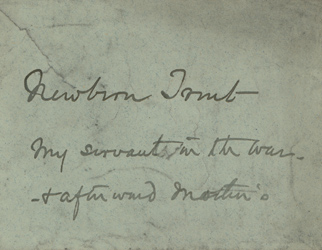 Newbern Trout
My servant in the War -
- & afterward Martin's